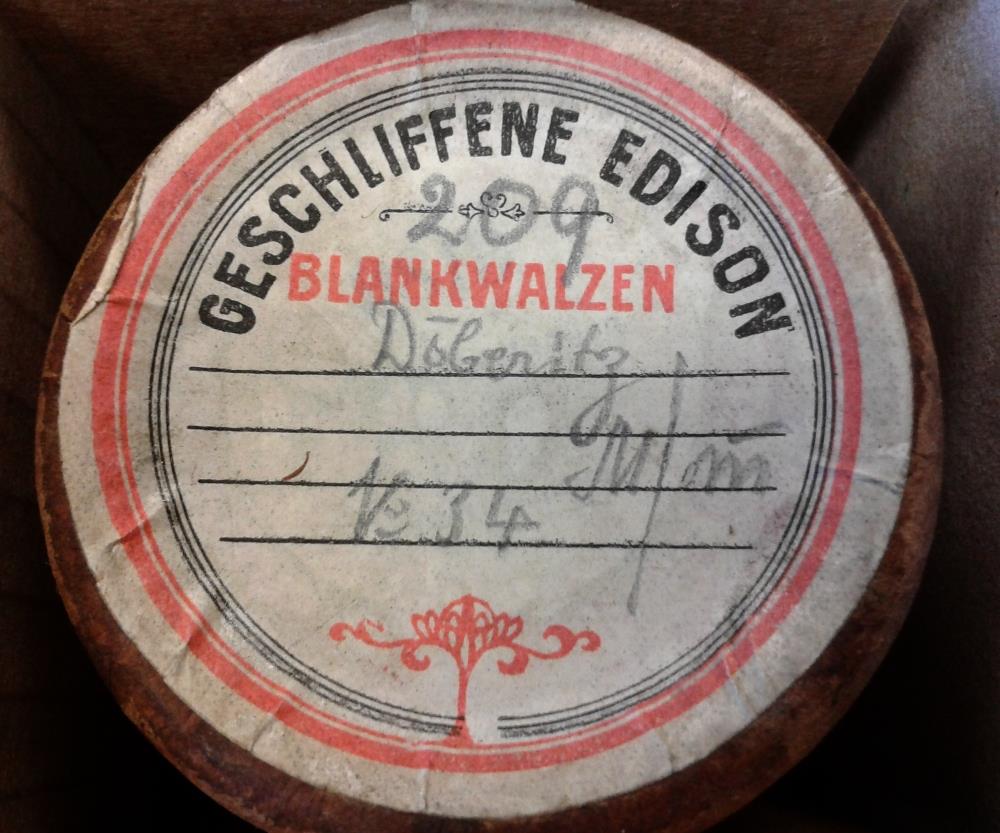 GESCHLIFFENE EDISON
209
BLANKWALZEN
Döberitz
№ 34